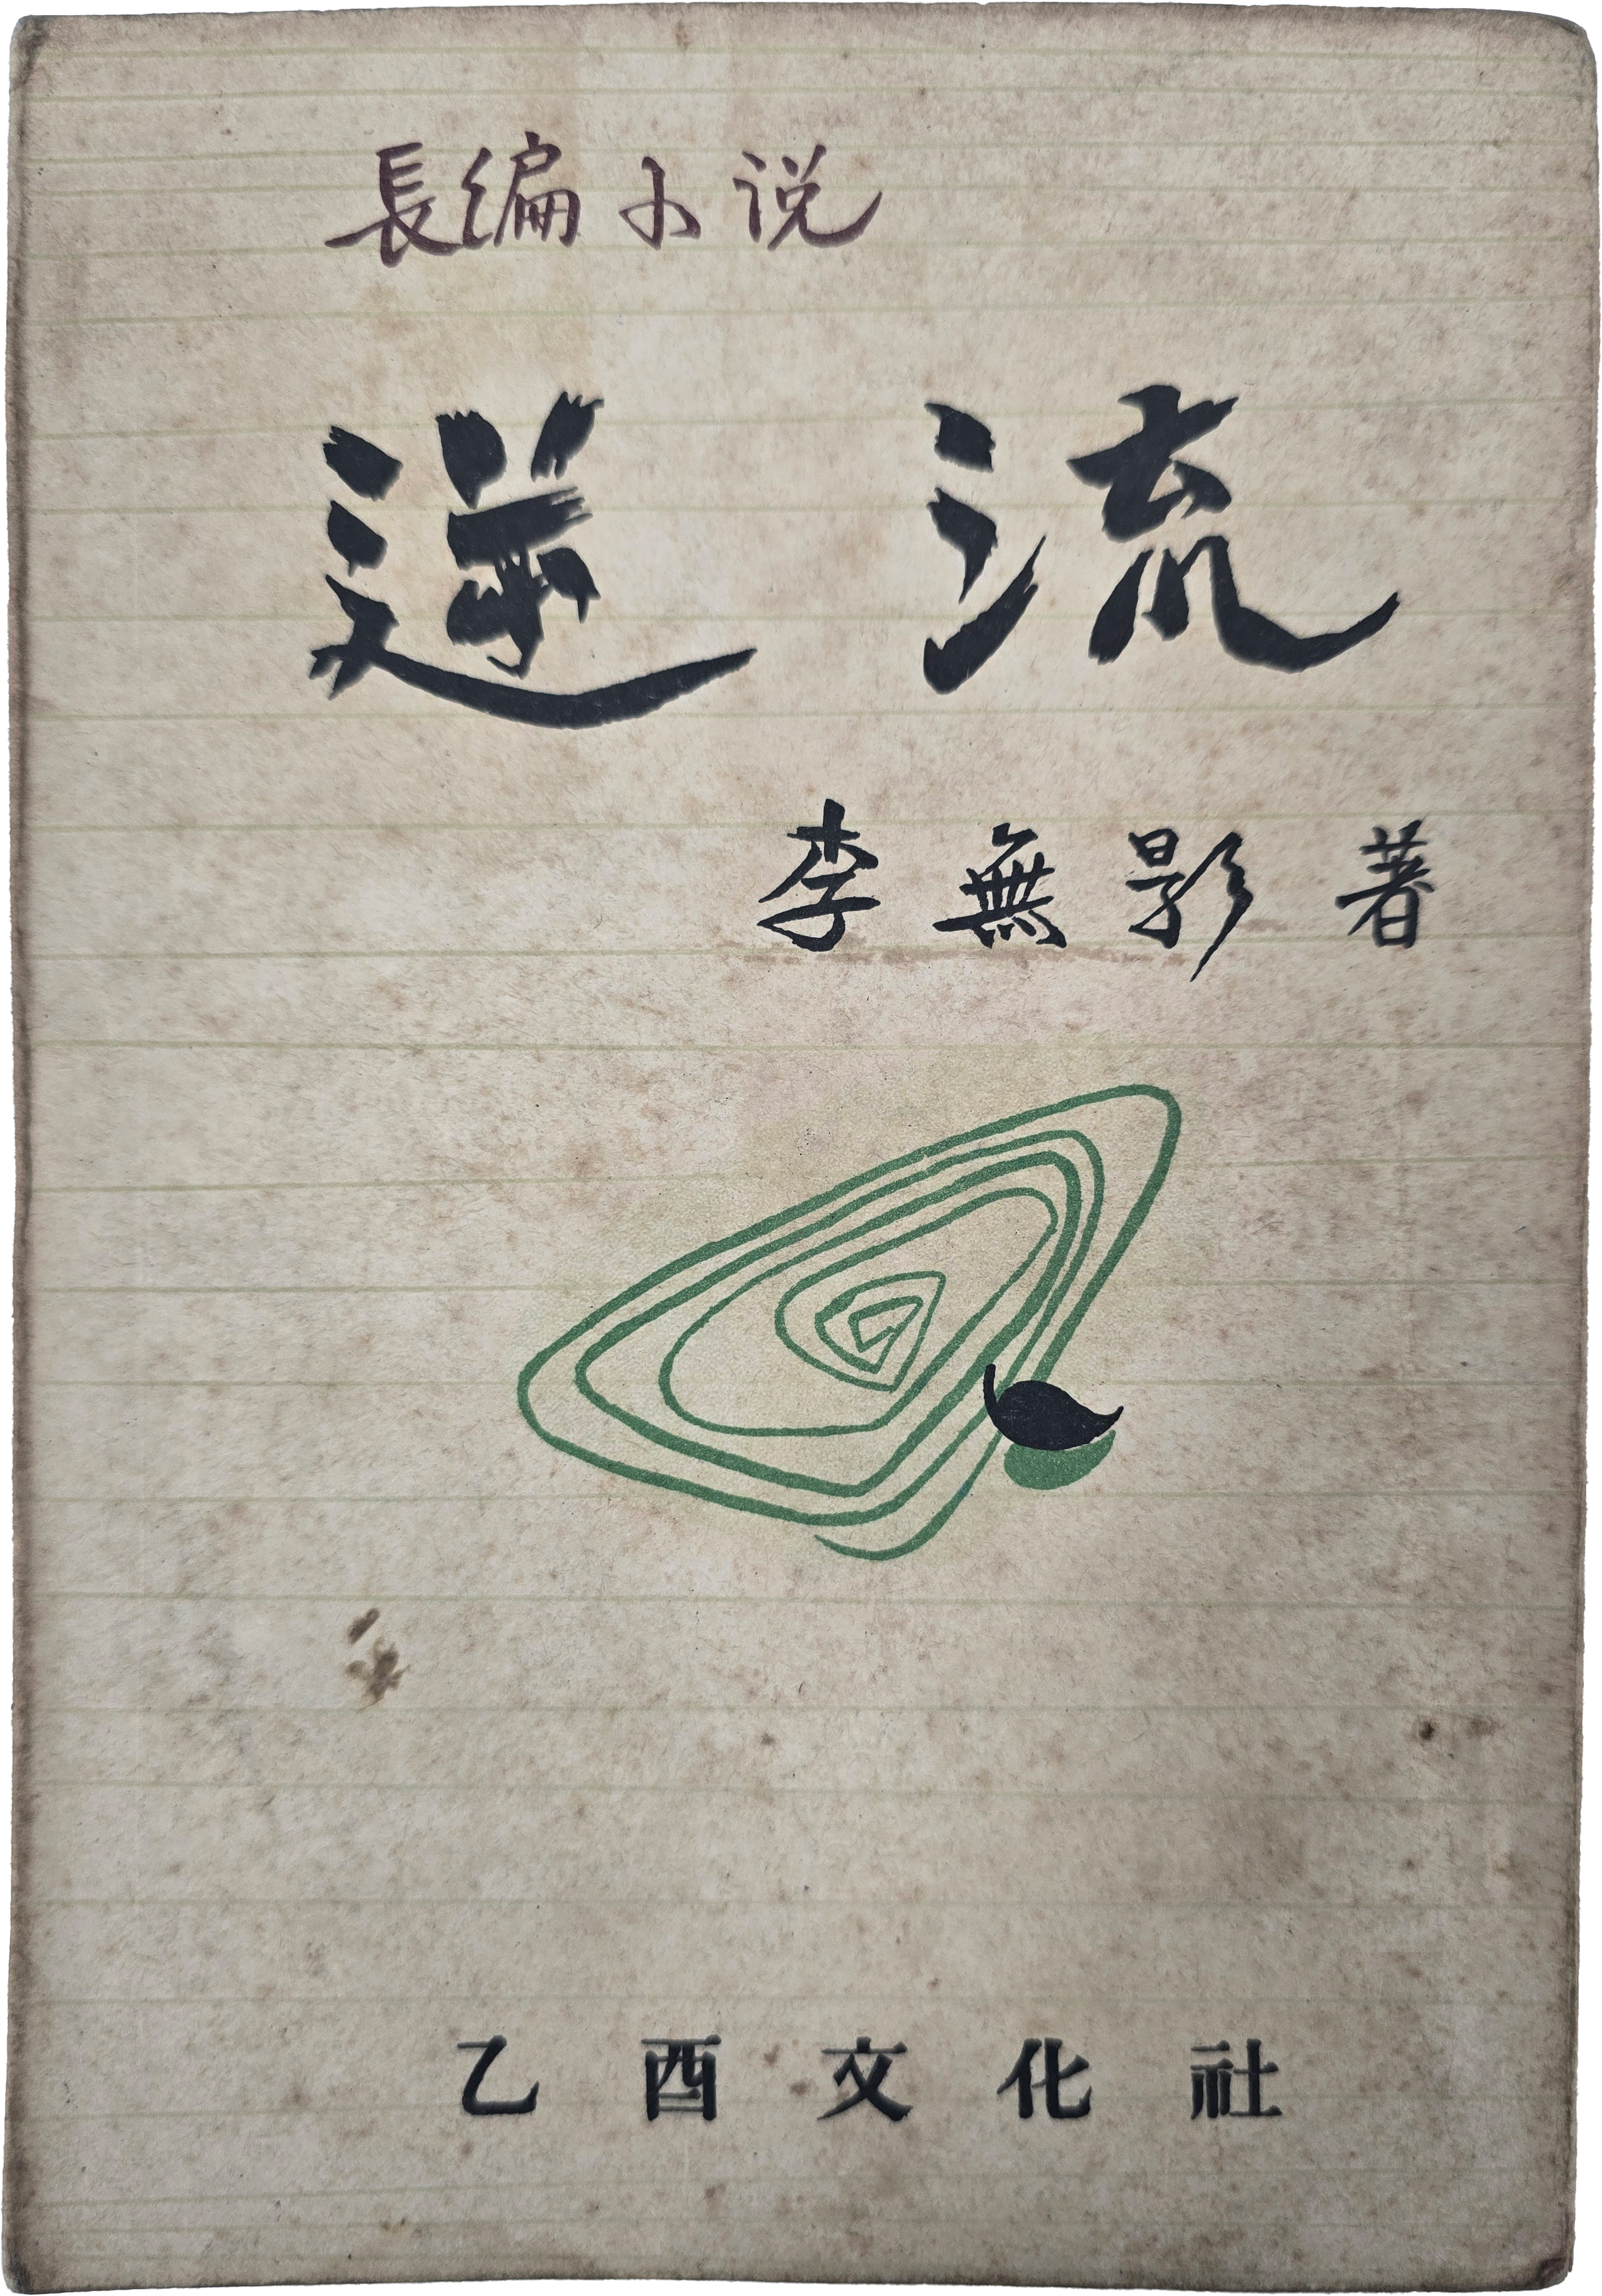 長編小説
逆流
李無影 著
乙酉文化社